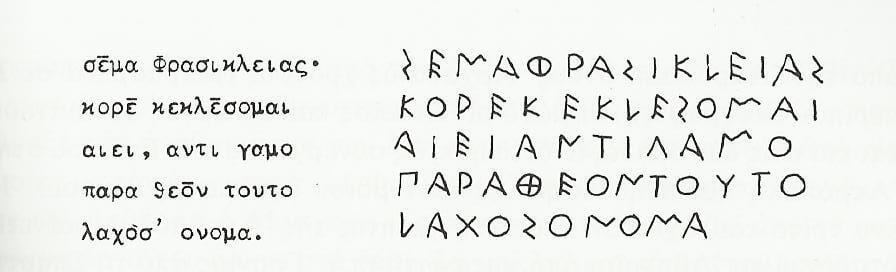 σε̄μα Φρασικλειας·
κορε̄ κεκλε̄σομαι
αιει, αντι γαμο
παρα ϑεο̄ν τουτο
λαχο̄σ’ ονομα.
ΣΕΜΑΦΡΑΣΙΚΛΕΙΑΣ
ΚΟΡΕΚΕΚΛΕΣΟΜΑΙ
ΑΙΕΙΑΝΤΙΓΑΜΟ
ΠΑΡΑΘΕΟΝΤΟΥΤΟ
ΛΑΧΟΣΟΝΟΜΑ